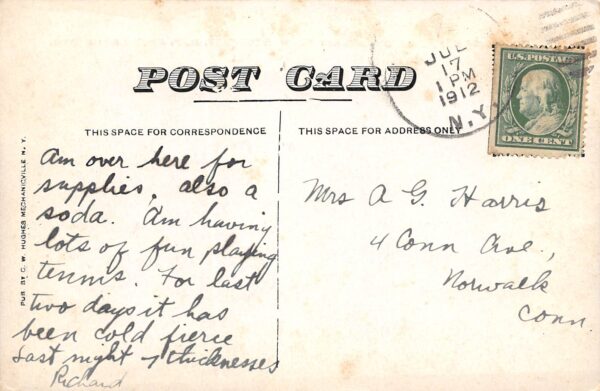 POST CARD
THIS SPACE FOR CORRESPONDENCE
THIS SPACE FOR ADDRESS ONLY
JUL
17
1 PM
1912
N.Y.
U.S. POSTAGE
ONE CENT
PUB. BY C. W. HUGHES MECHANICVILLE N. Y.
Am over here for
supplies, also a
soda. Am having
lots of fun playing
tennis. For last
two days it has
been cold fierce
Last night 7 thicknesses
Richard
Mrs A G. Harris
4 Conn Ave.,
Norwalk
Conn